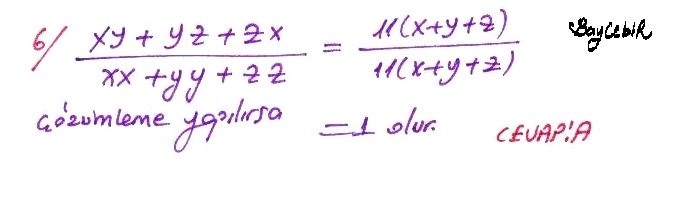 6/ xy + yz + zx / xx + yy + zz = 11(x+y+z) / 11(x+y+z) BayCebiR
Çözümleme yapılırsa = 1 olur. CEVAP:A